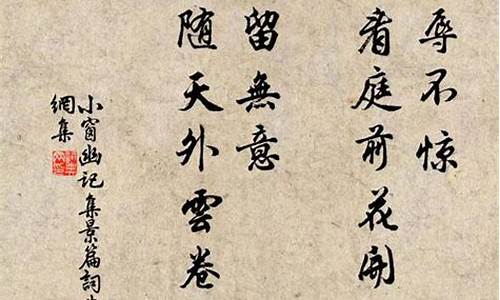 辱不惊
看庭前花開
留無意
随天外雲卷
小窗幽记集景篇詞
網集